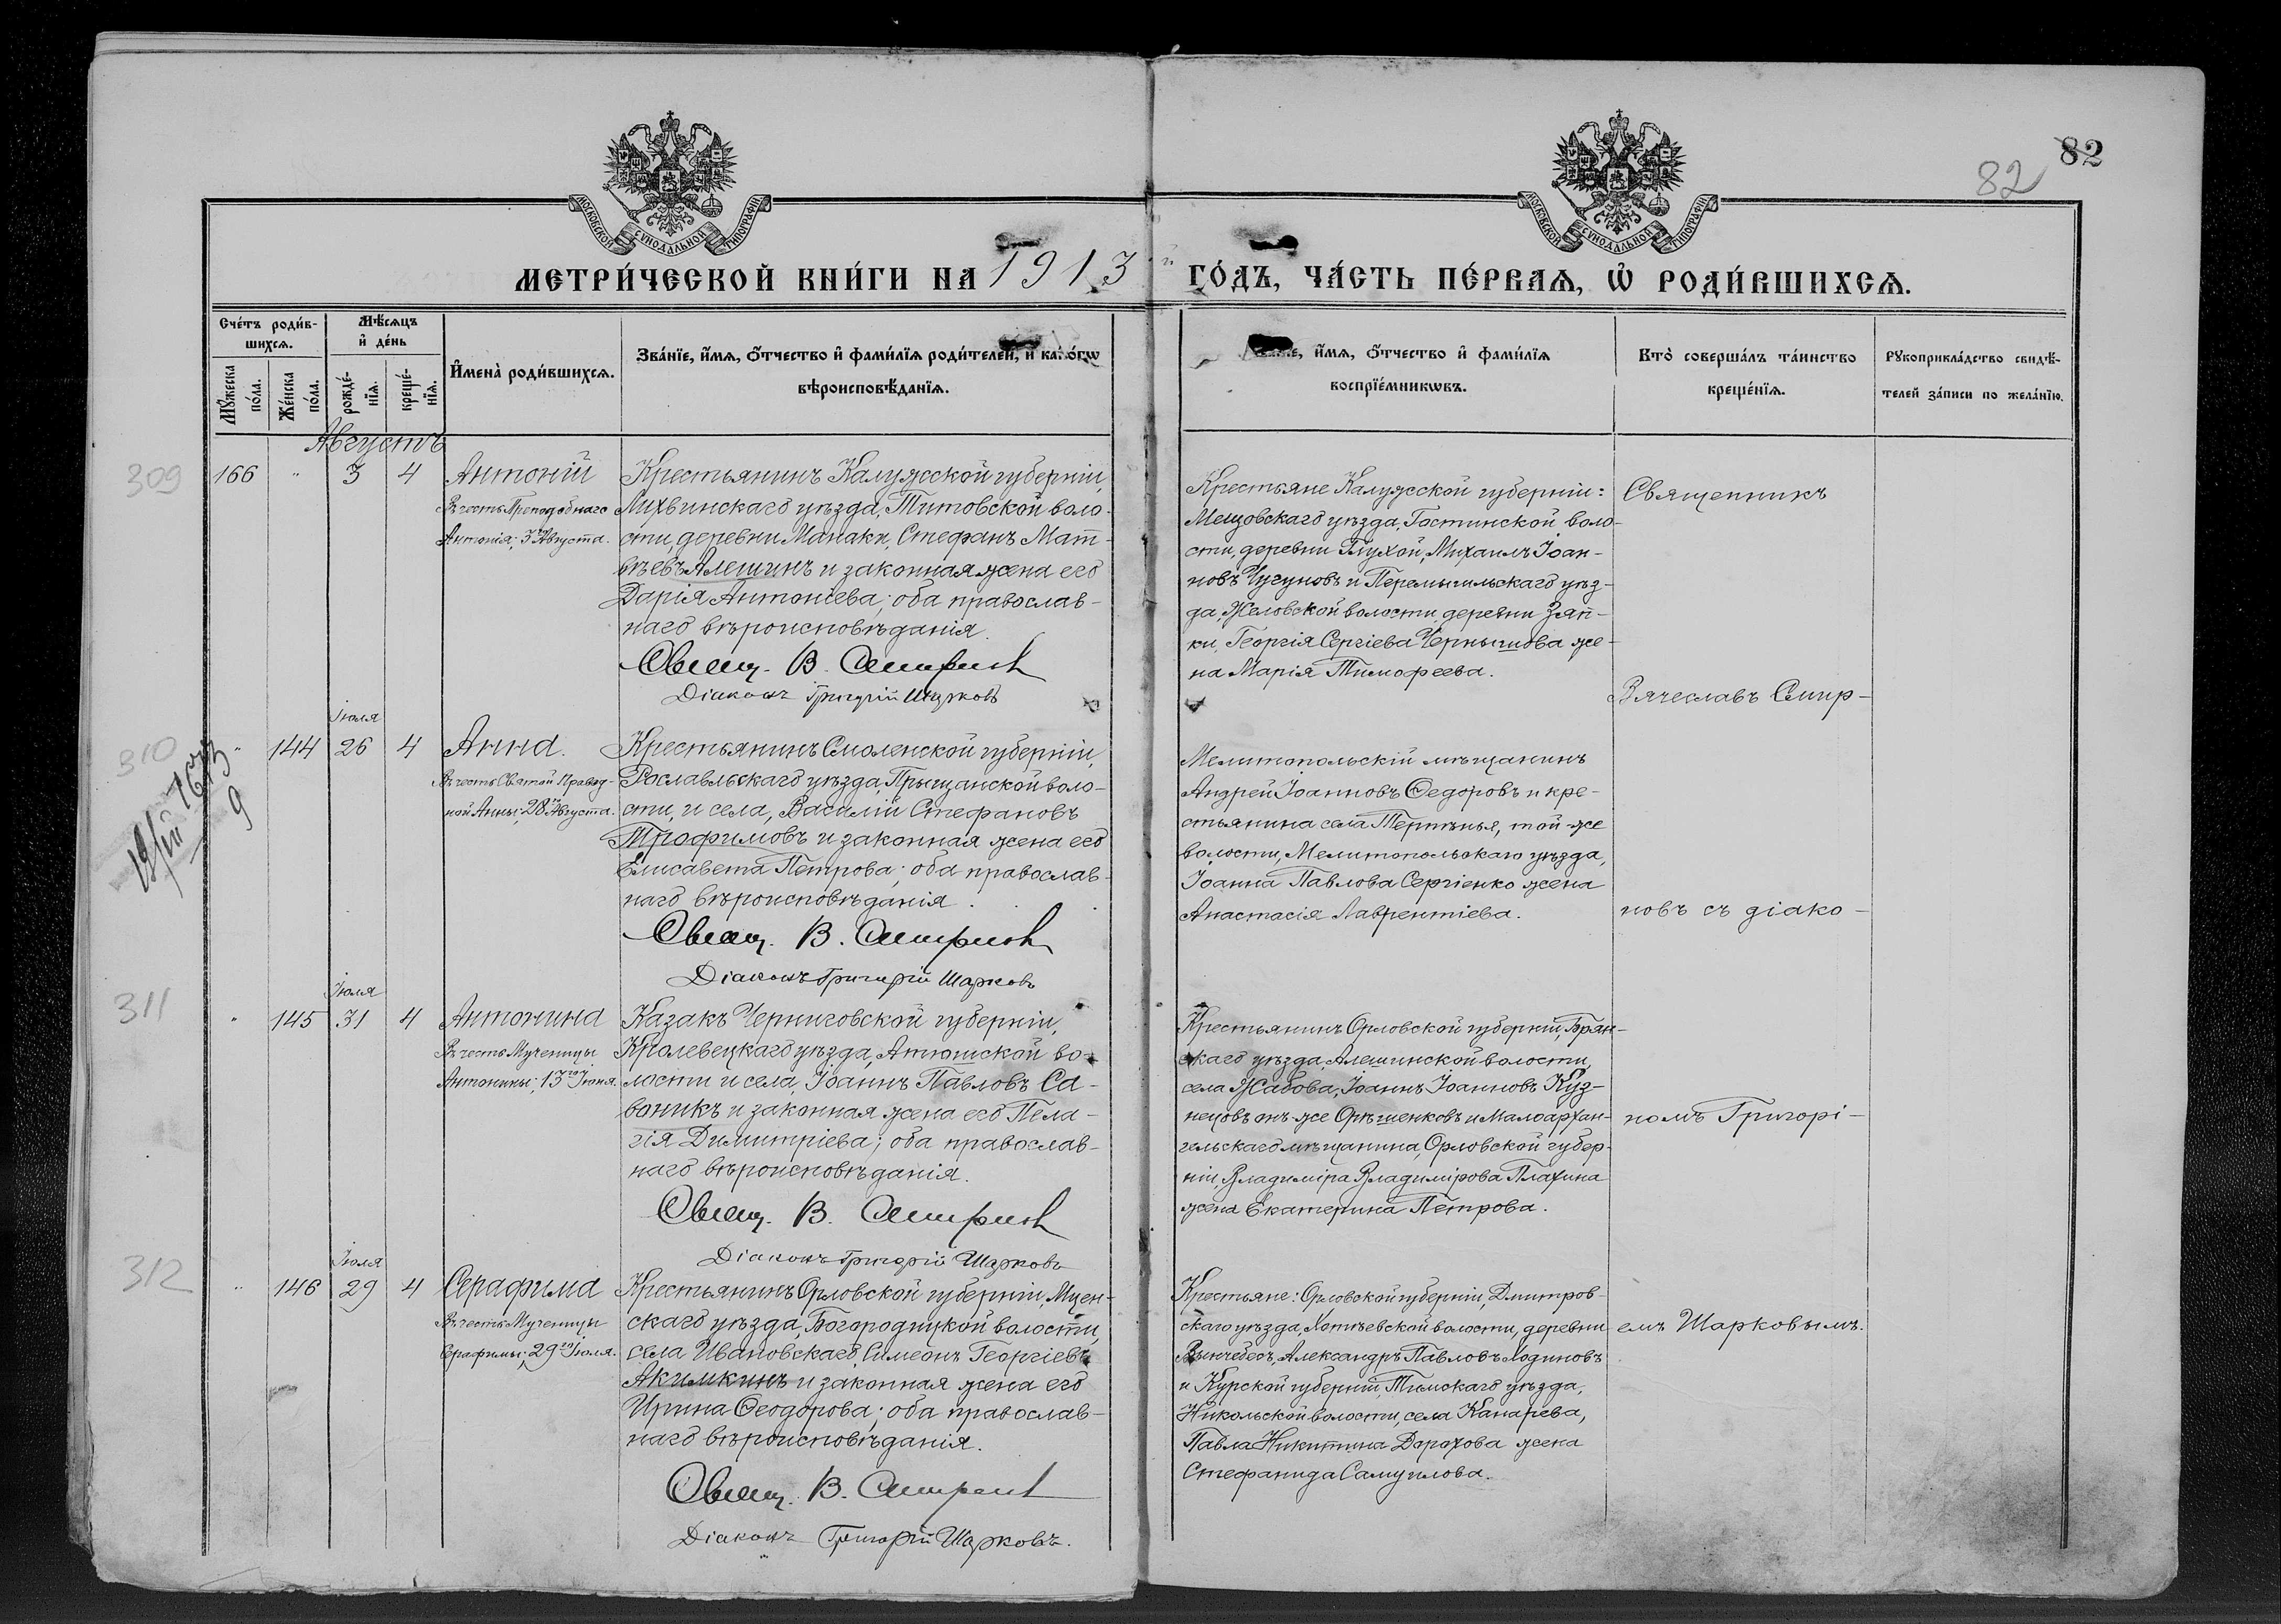 82
82
МОСКОВСКОЙ СУНОДАЛЬНОЙ ТИПОГРАФІИ
МОСКОВСКОЙ СУНОДАЛЬНОЙ ТИПОГРАФІИ
МЕТРИ́ЧЕСКОЙ КНИ́ГИ НА 1913 й ГО́ДЪ, ЧА́СТЬ ПЕ́РВАѦ, Ѡ РОДИ́ВШИХСѦ.
Сче́тъ роди́в-
шихсѧ.
Мѣ́сѧцъ
и҆ де́нь
Мꙋ́жеска
по́ла.
Же́нска
по́ла.
рожде́-
нїѧ.
креще́-
нїѧ.
И҆мена̀ роди́вшихсѧ.
Зва́нїе, и҆́мѧ, ѻ҆́тчество и҆ фами́лїѧ роди́телей, и҆ како́гѡ
вѣроисповѣ́данїѧ.
и҆́мѧ, ѻ҆́тчество и҆ фами́лїѧ
воспрїе́мникѡвъ.
Кто̀ соверша́лъ та́инство
креще́нїѧ.
Рꙋкоприкла́дство свидѣ́-
телей за́писи по жела́нїю.
Августъ
309
166 " 3 4 Антоній
Въ честь Преподобнаго
Антонія; 3го Августа.
Крестьянинъ Калужской губерніи,
Лихвинскаго уѣзда, Титовской воло-
сти, деревни Манаки, Стефанъ Мат-
вѣевъ Алешинъ и законная жена его
Дарія Антоніева; оба православ-
наго вѣроисповѣданія.
Свящ. В. Смирновъ
Діаконъ Григорій Шарковъ
Крестьяне Калужской губерніи:
Мещовскаго уѣзда, Гостинской воло-
сти, деревни Глухой, Михаилъ Іоан-
новъ Чугуновъ и Перемышльскаго уѣз-
да, Желовской волости, деревни Зяп-
ки, Георгія Сергіева Чернышова же-
на Марія Тимофеева.
Священникъ
Вячеславъ Смир-
310
Іюля
" 144 26 4 Анна.
Въ честь Святой Правед-
ной Анны; 28го Августа.
Крестьянинъ Смоленской губерніи,
Рославльскаго уѣзда, Прыщанской воло-
сти, и села, Василій Стефановъ
Трофимовъ и законная жена его
Елисавета Петрова; оба православ-
наго вѣроисповѣданія.
Свящ. В. Смирновъ
Діаконъ Григорій Шарковъ
Мелитопольскій мѣщанинъ
Андрей Іоанновъ Ѳедоровъ и кре-
стьянина села Терпѣнья, той-же
волости, Мелитопольскаго уѣзда,
Іоанна Павлова Сергіенко жена
Анастасія Лаврентіева.
новъ съ діако-
311
Іюля
" 145 31 4 Антонина
Въ честь Мученицы
Антонины; 13го Іюня.
Казакъ Черниговской губерніи,
Кролевецкаго уѣзда, Атюшской во-
лости и села, Іоаннъ Павловъ Са-
воникъ и законная жена его Пела-
гія Димитріева; оба православ-
наго вѣроисповѣданія.
Свящ. В. Смирновъ
Діаконъ Григорій Шарковъ
Крестьянинъ Орловской губерніи, Брян-
скаго уѣзда, Алешинской волости,
села Жабова, Іоаннъ Іоанновъ Куз-
нецовъ онъ-же Орѣшенковъ и Малоархан-
гельскаго мѣщанина, Орловской губер-
ніи, Владиміра Владимірова Плахина
жена Екатерина Петрова.
номъ Григорі-
312
Іюля
" 146 29 4 Серафима
Въ честь Мученицы
Серафимы; 29го Іюля.
Крестьянинъ Орловской губерніи, Мцен-
скаго уѣзда, Богородицкой волости,
села Ивановскаго, Симеонъ Георгіевъ
Акимкинъ и законная жена его
Ирина Ѳеодорова; оба православ-
наго вѣроисповѣданія.
Свящ. В. Смирновъ
Діаконъ Григорій Шарковъ.
Крестьяне: Орловской губерніи, Дмитров-
скаго уѣзда, Хотѣевской волости, деревни
Александръ Павловъ Лодиновъ
и Курской губерніи, Тимскаго уѣзда,
Никольской волости, села Канарева,
Павла Никитина Дорохова жена
Стефанида Самуилова.
емъ Шарковымъ.